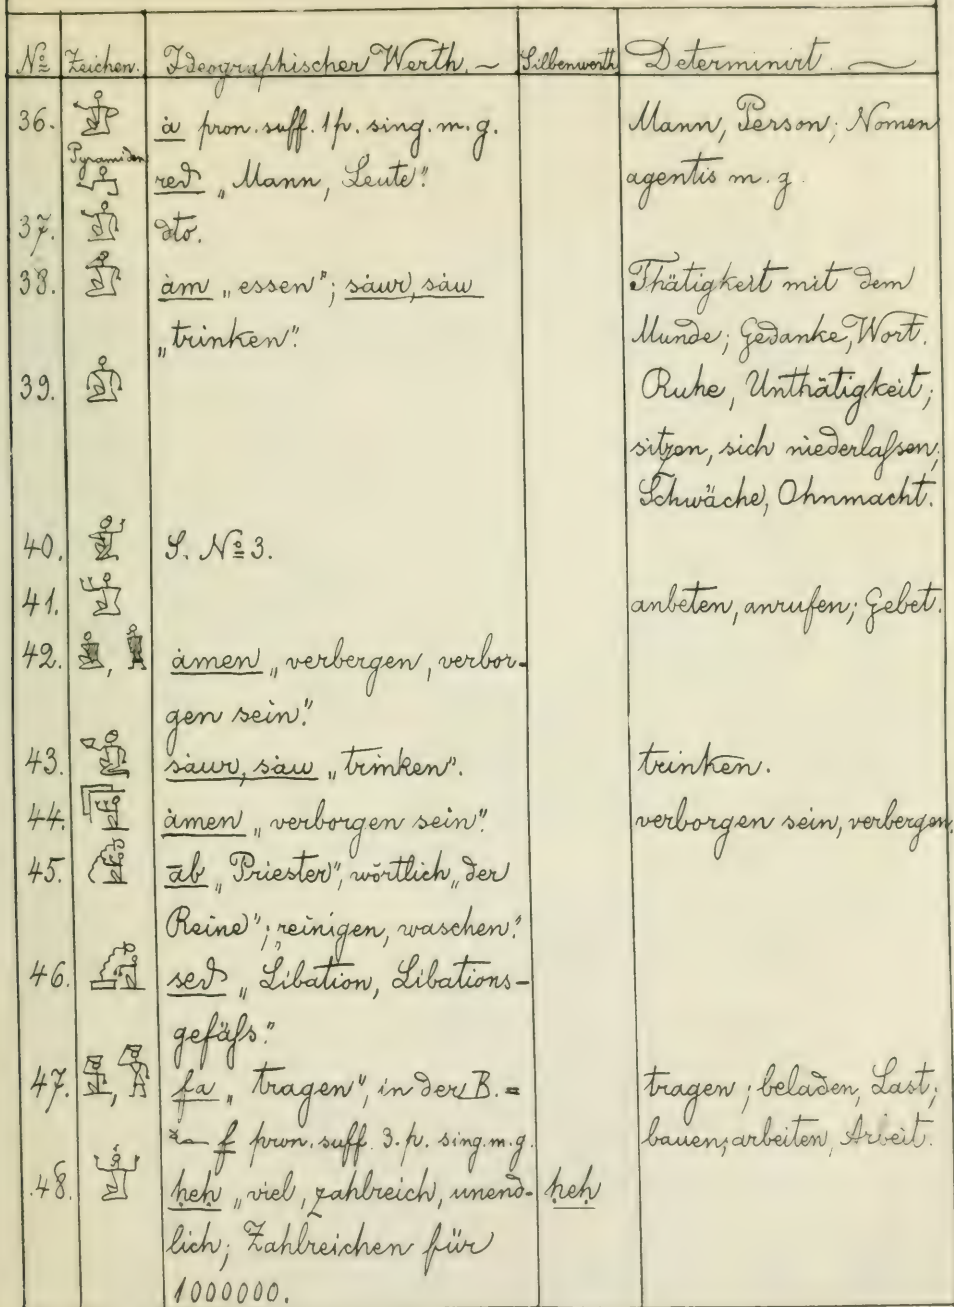 № Zeichen. Ideographischer Werth. ~ Silbenwerth Determinirt. ~
36. ȧ pron. suff. 1 p. sing. m. g. Mann, Person; Nomen
Pyramiden red „Mann, Leute". agentis m. g.
37. dto.
38. ȧm „essen"; sȧur, sȧu Thätigkeit mit dem
„trinken". Munde; Gedanke, Wort.
39. Ruhe, Unthätigkeit;
sitzen, sich niederlaſsen;
Schwäche, Ohnmacht.
40. S. № 3.
41. anbeten, anrufen; Gebet.
42. , ȧmen „verbergen, verbor-
gen sein".
43. sȧur, sȧu „trinken". trinken.
44. ȧmen „verborgen sein". verborgen sein, verbergen.
45. āb „Priester", wörtlich „der
Reine"; „reinigen, waschen".
46. sed „Libation, Libations-
gefäſs."
47. , fa „tragen", in der B. = tragen; beladen, Last;
f pron. suff. 3. p. sing. m. g. bauen; arbeiten, Arbeit.
48. ḥeḥ „viel, zahlreich, unend- ḥeḥ
lich; Zahlzeichen für
1000000.